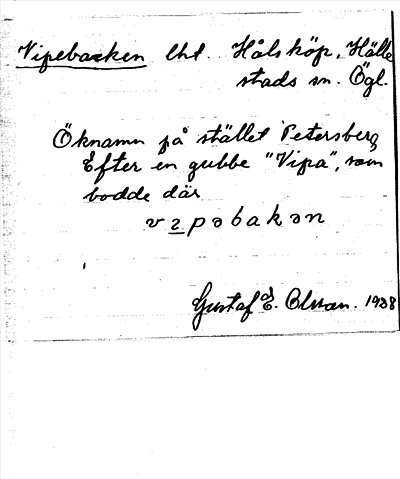 Vipebacken lht. Hålsköp, Hälle
stads sn. Ögl.
Öknamn på stället Petersberg
Efter en gubbe "Vipa", som
bodde där
vɪpəbakən
Gustaf E. Olsson. 1938